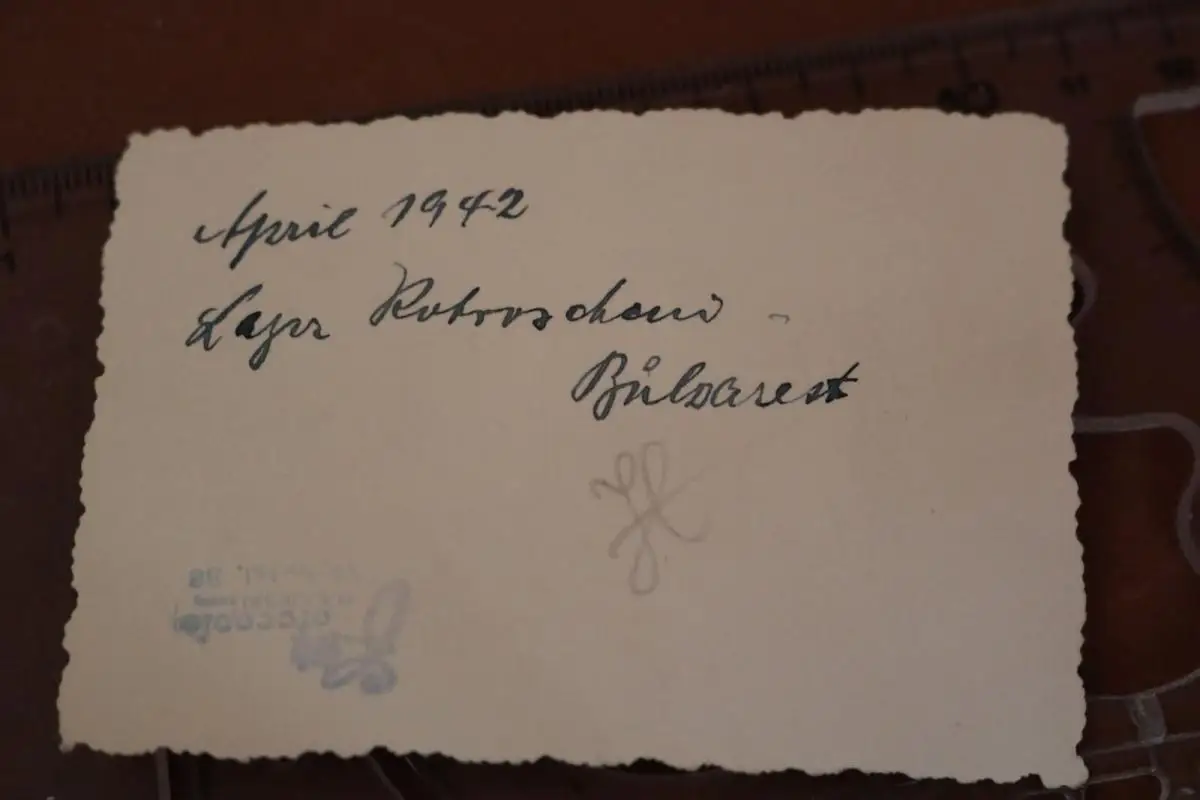 April 1942
Lager Kotroschani -
Bŭkarest